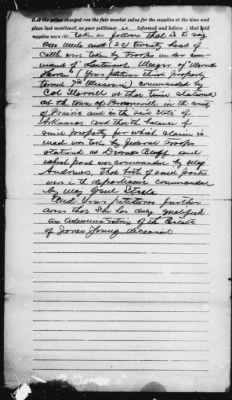 that the prices charged are the fair market value for the supplies at the time and
place last mentioned, as your petitioner is informed and believes; that said
supplies were taken as follows that is to say
One mule and (20) twenty head of
cattle were taken by troops under com
mand of Lieutenant of
( your petitioner thinks properly
termed 7th Missouri) commanded by
Col Merrill at that time stationed
at the town of Brownsville in the county
of Prairie and in the said State of
Arkansas and that the balance of
said property for which claim is
made was taken by federal troops
stationed at Bluff and
which post was commanded by Maj
Andrews, that both of said posts
were in the department commanded
by Maj Genl Steele
And your petitioner further
avers that she has duly qualified
as administratrix of the Estate
of Jones Young deceased